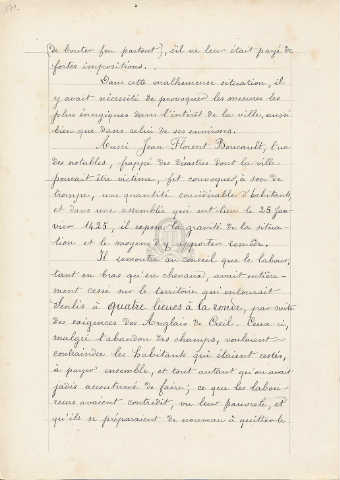 (de bouter feu partout), s'il ne leur était payé de
fortes impositions..
Dans cette malheureuse situation, il
y avait nécessité de provoquer les mesures les
plus énergiques dans l'intérêt de la ville, aussi
bien que dans celui de ses environs.
Aussi Jean Florent Boucault, l'un
des notables, frappé des désastres dont la ville
pouvait être victime, fit convoquer, à son de
trompe, une quantité considérable d'habitants,
et dans une assemblée qui eut lieu le 25 Jan-
vier 1425, il exposa la gravité de la situa-
tion et le moyen d'y apporter remède.
Il remontra au conseil que le labour,
tant en bras qu'en chevaux, avait entière-
ment cessé sur le territoire qui entourait
Senlis à quatre lieues à la ronde, par suite
des exigences des Anglais de Creil. Ceux-ci,
malgré l'abandon des champs, voulaient
contraindre les habitants qui étaient restés,
à payer ensemble, et tout autant qu'on avait
jadis accoutumé de faire; ce que les labou-
reurs avaient contredit, vu leur pauvreté, et
qu'ils se préparaient de nouveau à quitter le